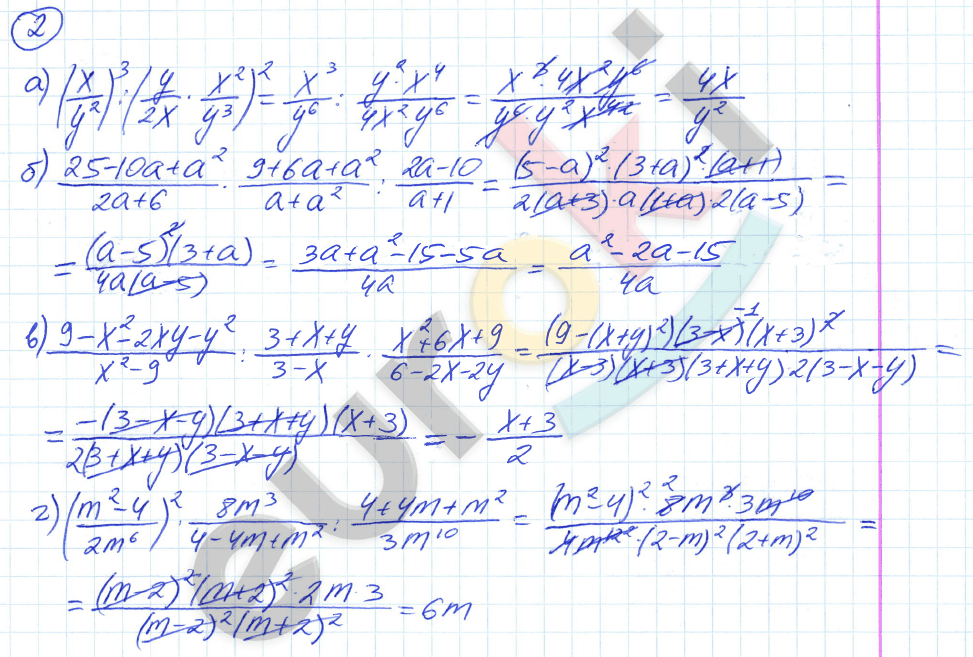 2
а) (x/y²)³ : (y/2x · x²/y³)² = x³/y⁶ : y²x⁴/4x²y⁶ = x³·4x²y⁶/y⁶·y²x⁴ = 4x/y²
б) 25-10a+a²/2a+6 · 9+6a+a²/a+a² : 2a-10/a+1 = (5-a)²·(3+a)²·(a+1)/2(a+3)·a(1+a)·2(a-5) =
= (a-5)²(3+a)/4a(a-5) = 3a+a²-15-5a/4a = a²-2a-15/4a
в) 9-x²-2xy-y²/x²-9 : 3+x+y/3-x · x²+6x+9/6-2x-2y = (9-(x+y)²)(3-x)⁻¹(x+3)²/(x-3)(x+3)(3+x+y)2(3-x-y) =
= -(3-x-y)(3+x+y)(x+3)/2(3+x+y)(3-x-y) = - x+3/2
г) (m²-4/2m⁶)² · 8m³/4-4m+m² : 4+4m+m²/3m¹⁰ = (m²-4)²·²8m³·3m¹⁰/4m¹²·(2-m)²(2+m)² =
= (m-2)²(m+2)²·2m·3/(m-2)²(m+2)² = 6m
euroki